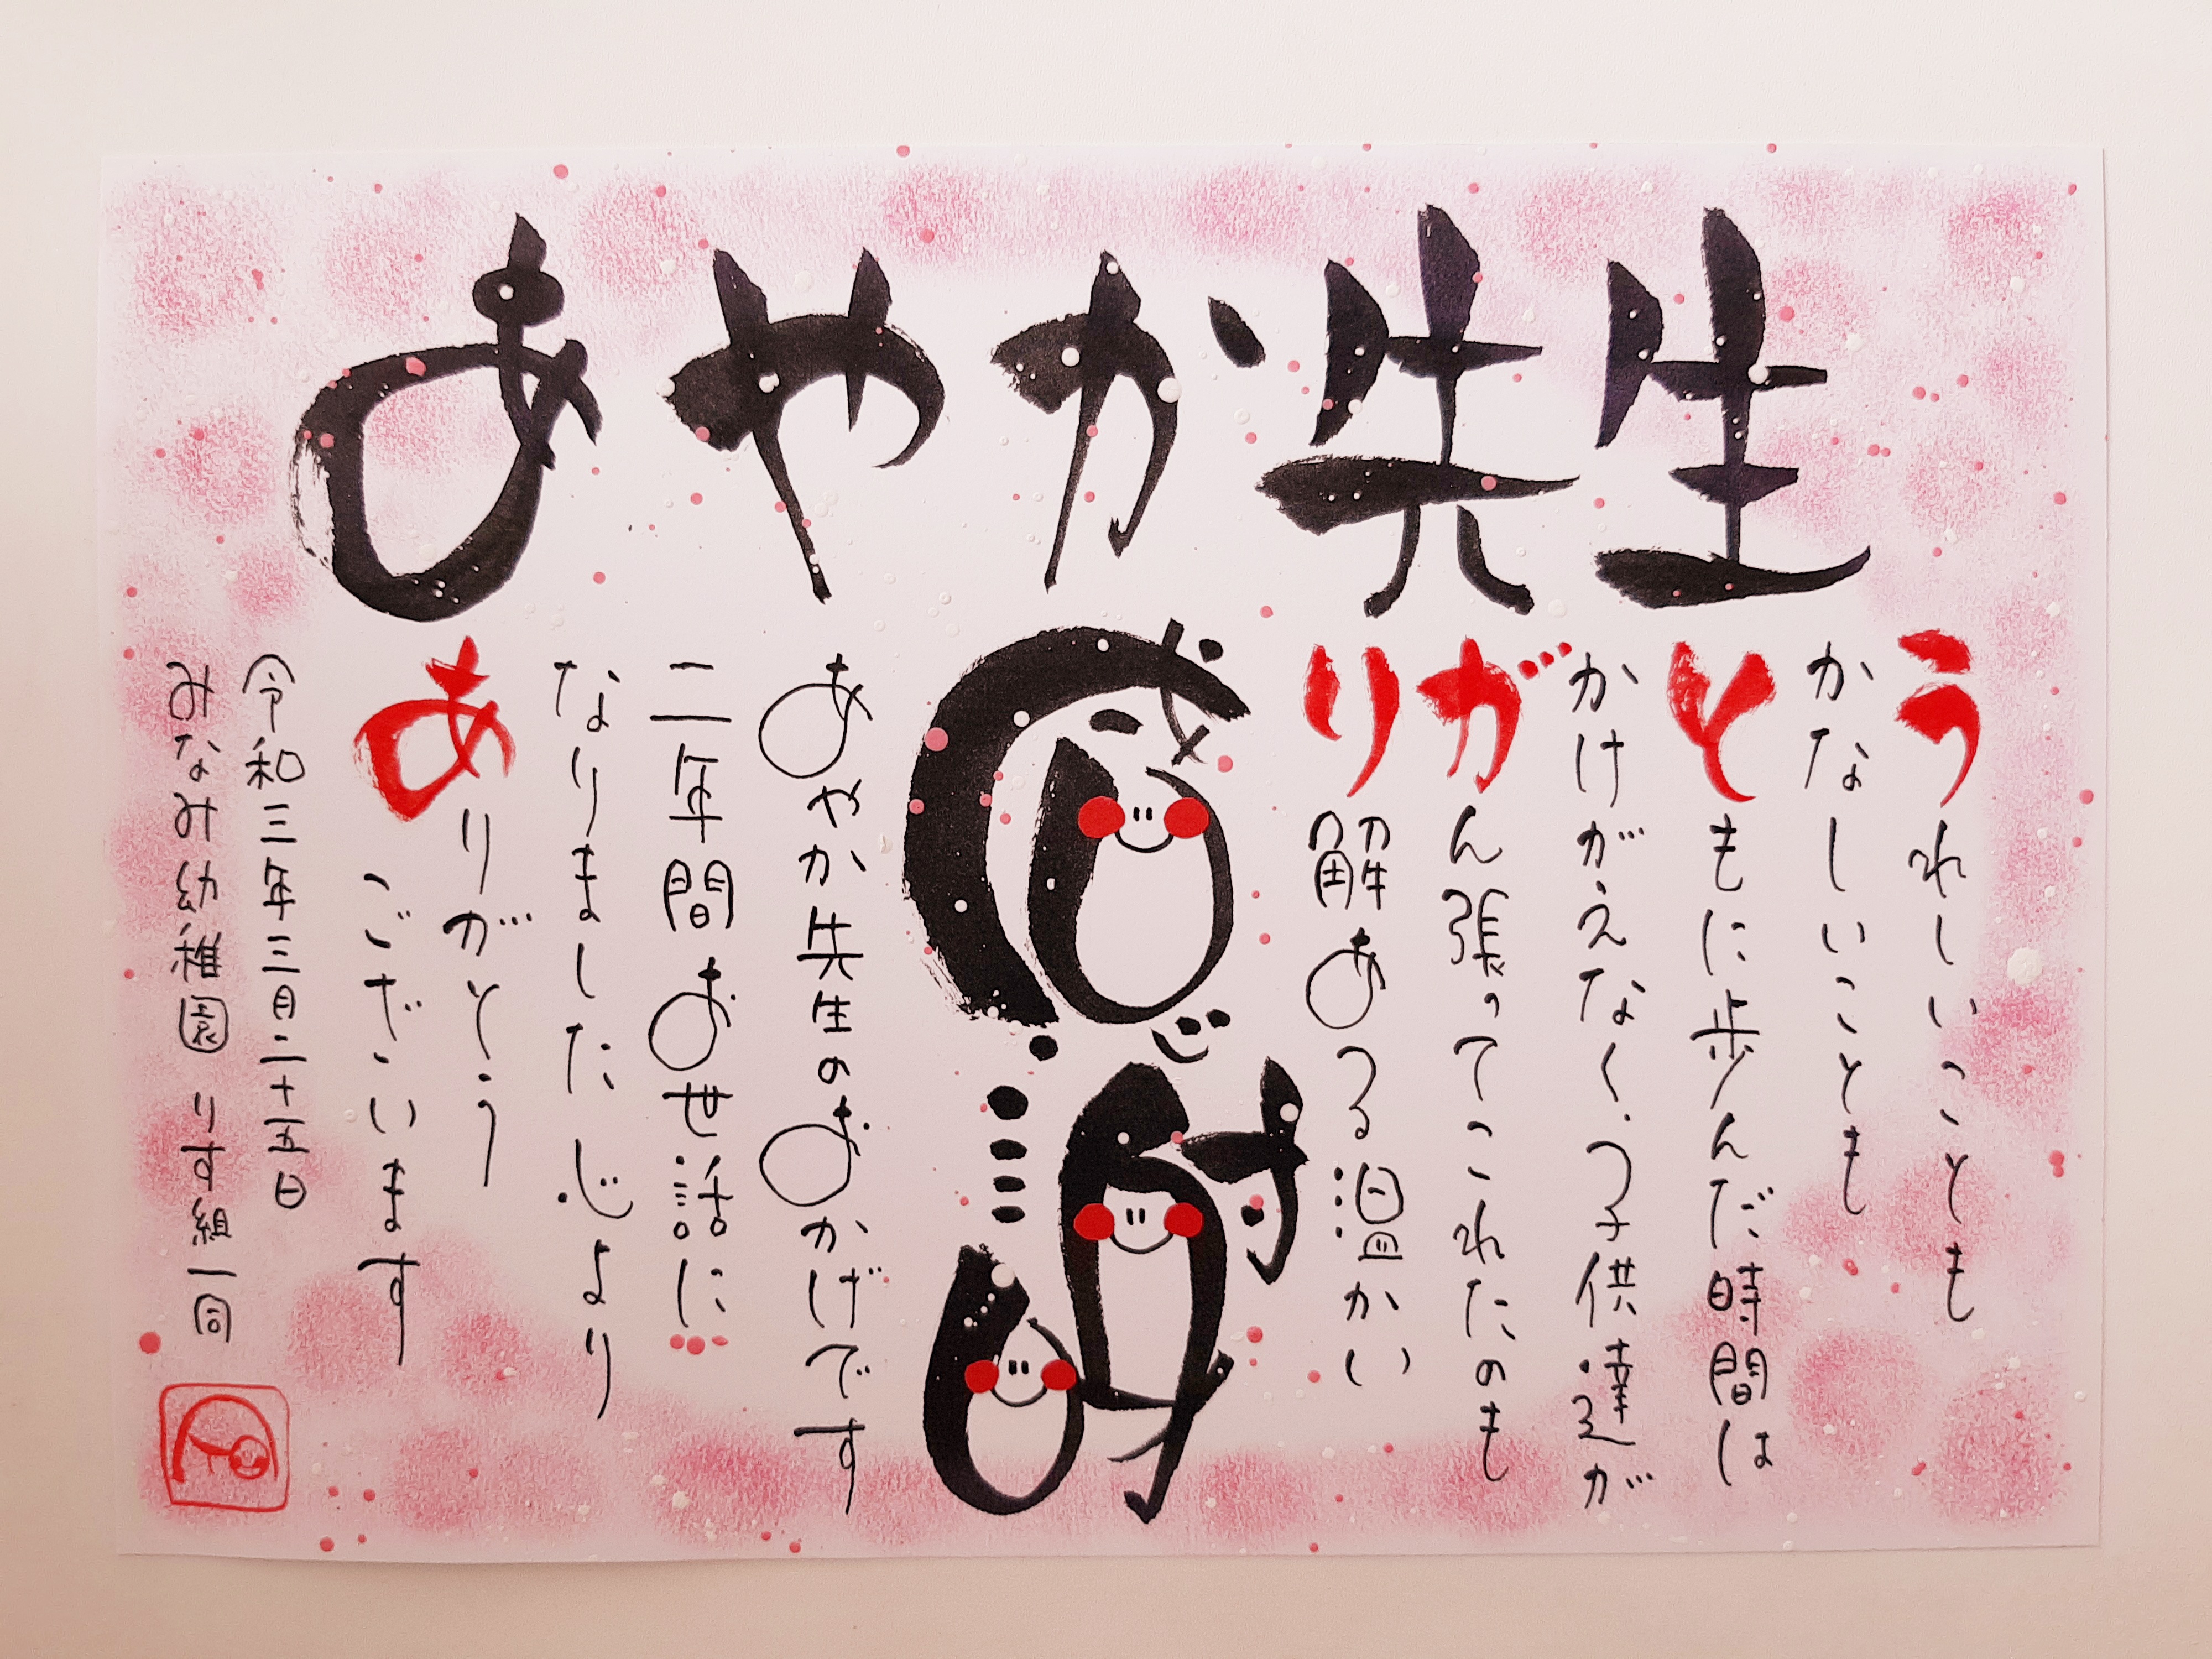 あやか先生
うれしいことも
かなしいことも
ともに歩んだ時間は
かけがえなく、子供達が
がん張ってこれたのも
り解ある温かい
感謝
あやか先生のおかげです
二年間お世話に
なりました 心より
ありがとう
ございます
令和三年三月二十五日
みなみ幼稚園 りす組一同